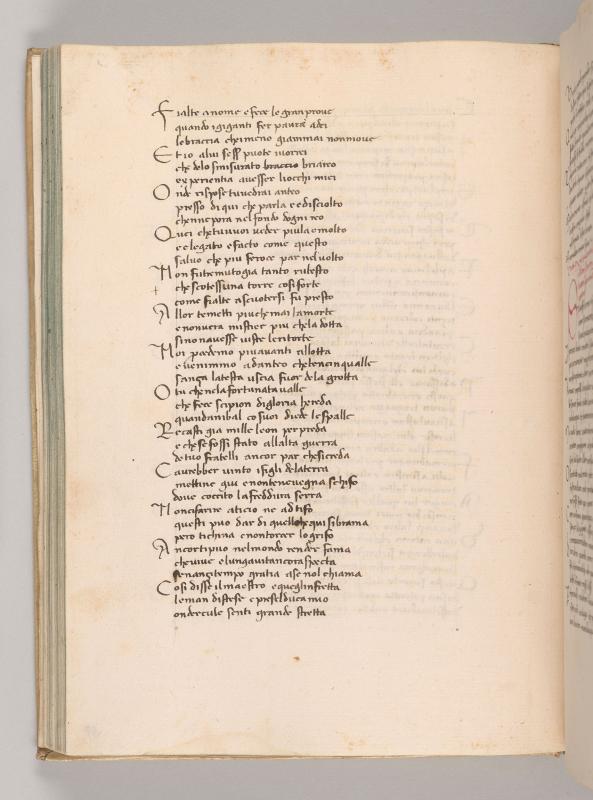 Fialte a nome e fece le gran prove
quando i giganti fer paura a dei
le braccia chei meno giammai non move
Et io alui sess puote i vorrei
che delo smisurato braccio briareo
experientia avesser liocchi miei
Onde rispose tu vedrai anteo
presso di qui che parla e e disciolto
chenne pora nel fondo dogni reo
Quei che tu vuoi veder piu la e molto
e e legato e facto come questo
salvo che piu feroce par nel volto
Non fu tremuto gia tanto rubesto
che scotessi una torre cosi forte
come fialte a scuotersi fu presto
Allor temetti piu che mai la morte
e non vera mistier piu che la dotta
sino navesse viste le ritorte
Noi procedemo piu avanti allotta
e venimmo ad anteo che ben cinqu alle
sança la testa uscia fuor de la grotta
O tu che nela fortunata valle
che fece scipion di gloria hereda
quand anibal co suoi diede le spalle
Recasti gia mille leon per preda
e che se fossi stato all alta guerra
de tuo fratelli ancor par che si creda
Caurebber vinto i figli dela terra
mettine qui e non tene vegna schifo
dove coccito la freddura serra
Non ci far ire a ticio ne ad tifo
questi puo dar di quello che qui si brama
pero tichina e non torcer lo grifo
Ancor ti puo nel mondo render fama
che vive e lunga vita ancor aspecta
se nançi tempo gratia a se nol chiama
Cosi disse il maestro e quegli in fretta
le man distese e prese il duca mio
ond ercule senti grande stretta